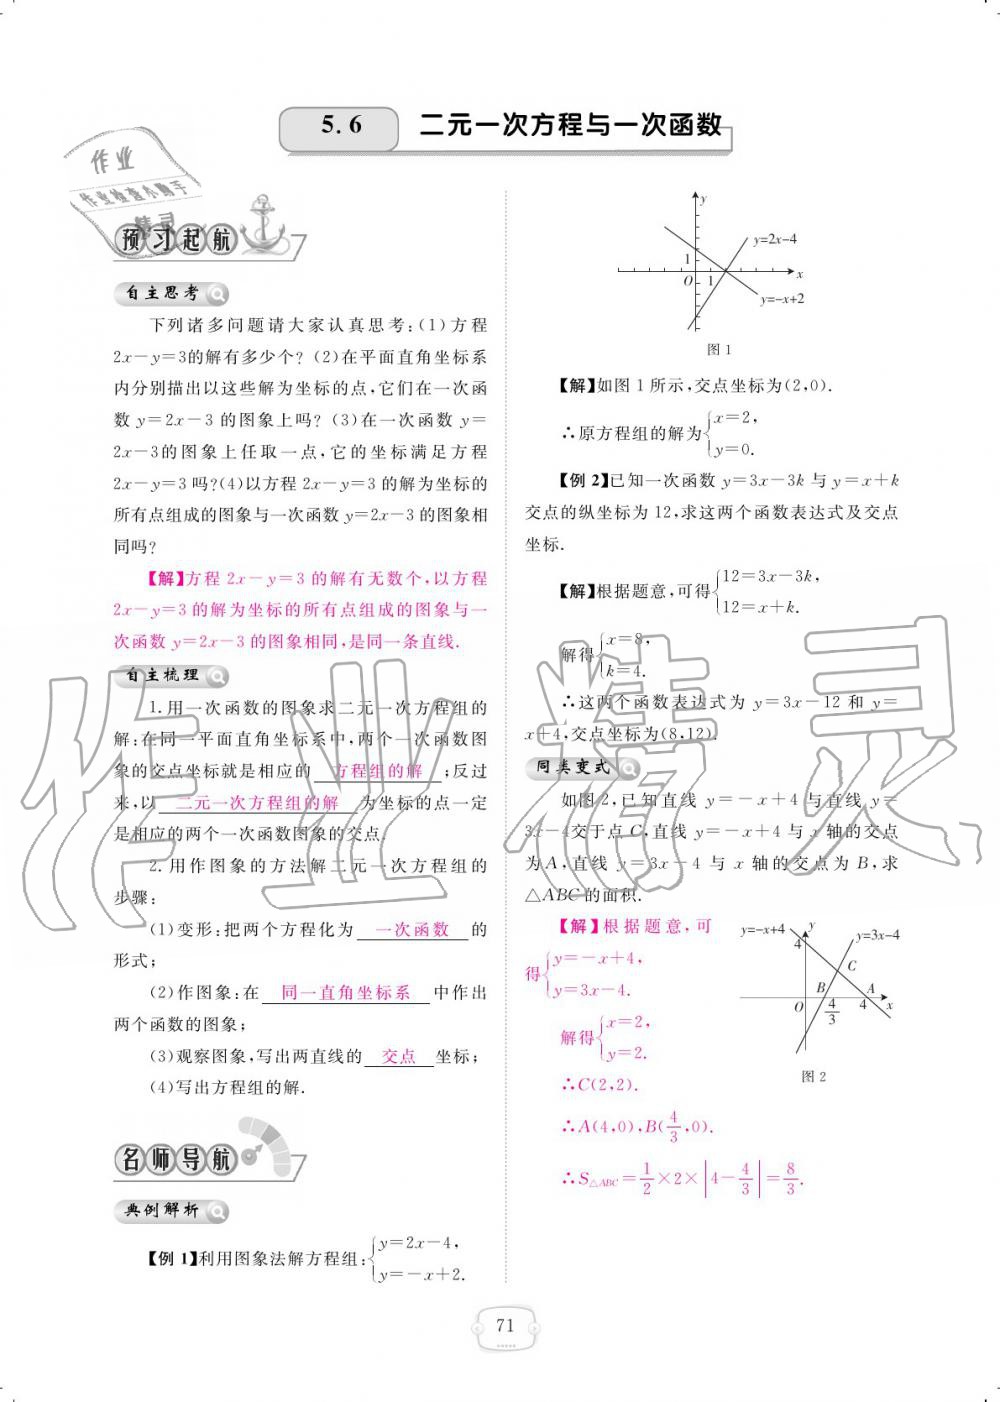 5.6 二元一次方程与一次函数
作业
作业检查小助手
精灵
预习起航
自主思考
下列诸多问题请大家认真思考:(1)方程
2x-y=3的解有多少个? (2)在平面直角坐标系
内分别描出以这些解为坐标的点,它们在一次函
数 y=2x-3 的图象上吗? (3)在一次函数 y=
2x-3的图象上任取一点,它的坐标满足方程
2x-y=3 吗?(4)以方程 2x-y=3 的解为坐标的
所有点组成的图象与一次函数 y=2x-3 的图象相
同吗?
【解】方程 2x-y=3 的解有无数个,以方程
2x-y=3 的解为坐标的所有点组成的图象与一
次函数 y=2x-3 的图象相同,是同一条直线.
自主梳理
1.用一次函数的图象求二元一次方程组的
解:在同一平面直角坐标系中,两个一次函数图
象的交点坐标就是相应的 方程组的解 ;反过
来,以 二元一次方程组的解 为坐标的点一定
是相应的两个一次函数图象的交点.
2.用作图象的方法解二元一次方程组的
步骤:
(1)变形:把两个方程化为 一次函数 的
形式;
(2)作图象:在 同一直角坐标系 中作出
两个函数的图象;
(3)观察图象,写出两直线的 交点 坐标;
(4)写出方程组的解.
名师导航
典例解析
【例 1】利用图象法解方程组:{y=2x-4,
y=-x+2.
y
y=2x-4
1
O 1 x
y=-x+2
图 1
【解】如图 1 所示,交点坐标为(2,0).
∴原方程组的解为{x=2,
y=0.
【例 2】已知一次函数 y=3x-3k 与 y=x+k
交点的纵坐标为 12,求这两个函数表达式及交点
坐标.
【解】根据题意,可得{12=3x-3k,
12=x+k.
解得{x=8,
k=4.
∴这两个函数表达式为 y=3x-12 和 y=
x+4,交点坐标为(8,12).
同类变式
如图 2,已知直线 y=-x+4 与直线 y=
3x-4交于点 C,直线 y=-x+4 与 x 轴的交点
为 A,直线 y=3x-4 与 x 轴的交点为 B,求
△ABC的面积.
【解】根据题意,可
得{y=-x+4,
y=3x-4.
解得{x=2,
y=2.
∴C(2,2).
∴A(4,0),B(4/3,0).
∴S△ABC=1/2×2×|4-4/3|=8/3.
y=-x+4 y
4 y=3x-4
C
B A
O 4/3 4 x
图 2
71
作业精灵